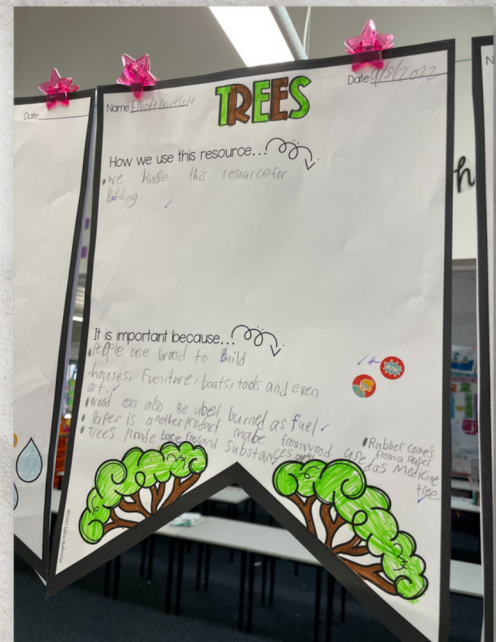 Date
Name Elliott Bartlett
Date 9/8/2022
TREES
How we use this resource...
• We huse this resource for
Bulding
It is important because...
• People use wood to build
houses, Furniture, boats, tools and even
art.
• wood can also Be used burned as fuel
• Paper is another product made from wood
• Trees provide and substances used as medicine
• Rubber comes
from a
tree
h
N